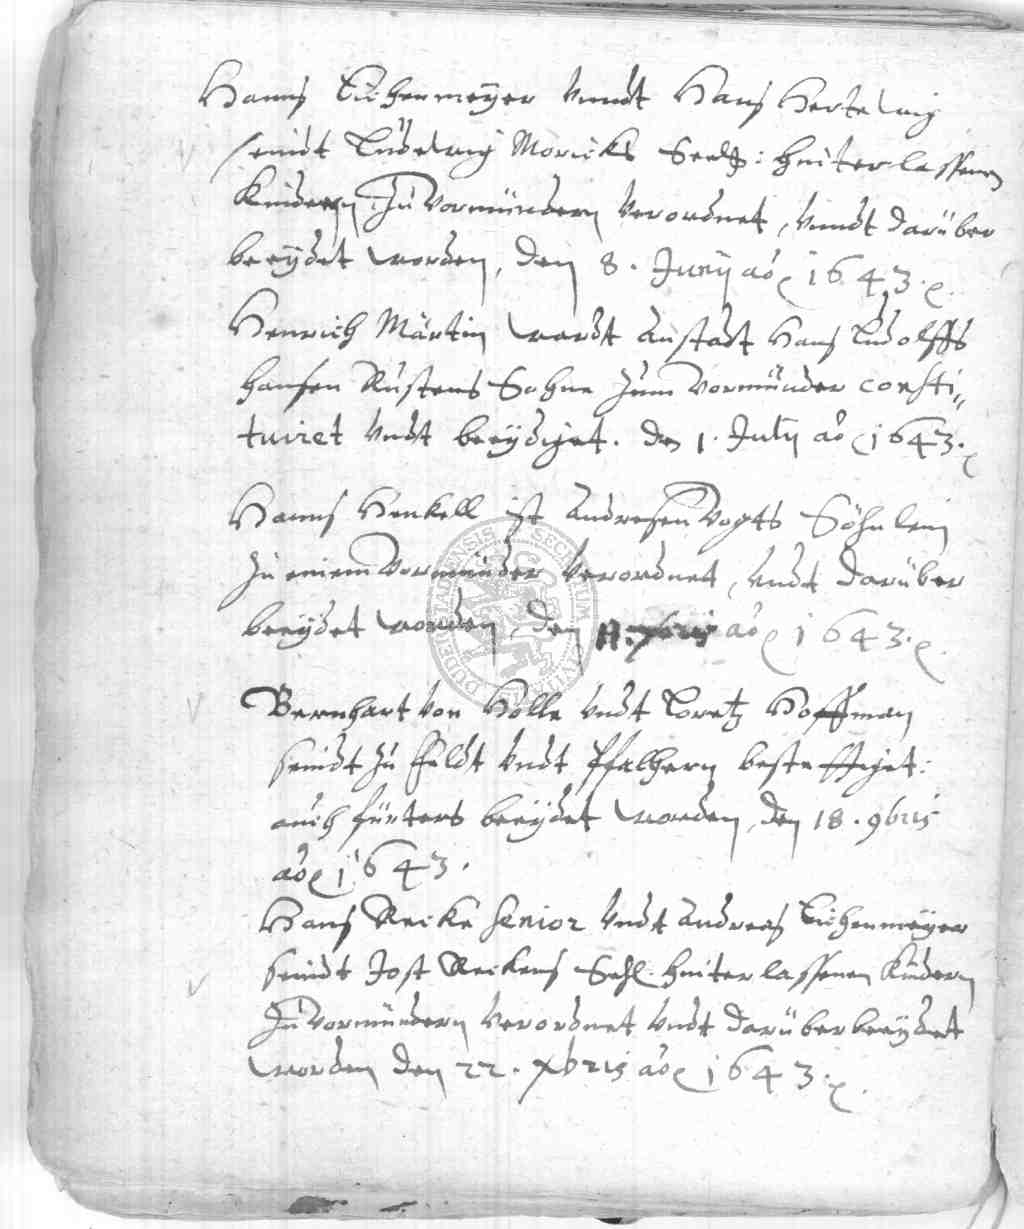 Hanns Eichenmeÿer Vnndt Hans Hertewig
seindt Ludewig Moricks Seelg: hinterlassenen
Kindern Zu Vormündern Verordnet, Vnndt darüber
beeÿdet worden, den 8. Junÿ aō 1643.
Henrich Märtin wardt anstadt Hans Ludolffs
hansen Rustens Sohne Zum Vormünder consti„
tuiret Vndt beeÿdiget. den 1. Julÿ aō 1643.
Hanns Henkell ist Andresen Vogts Söhnlein
Zu einem Vormünder Verordnet, Vndt darüber
beeÿdet worden, den 11. 7bris aō 1643.
Bernhart von Holle Vndt Loretz Hoffman
seindt Zu Feldt Vndt Pfalhern bestettiget:
auch fürters beeÿdet worden, den 18. 9bris
aō 1643.
Hans Recke senior Vndt Andreas Eichenmeÿer
seindt Jost Reckens Sehl. hinterlassenen Kindern
Zu Vormündern Verordnet Vndt darüber beeÿdet
worden den 22. Xbris aō 1643.
SECRETUM CIVITATIS DUDERSTADENSIS